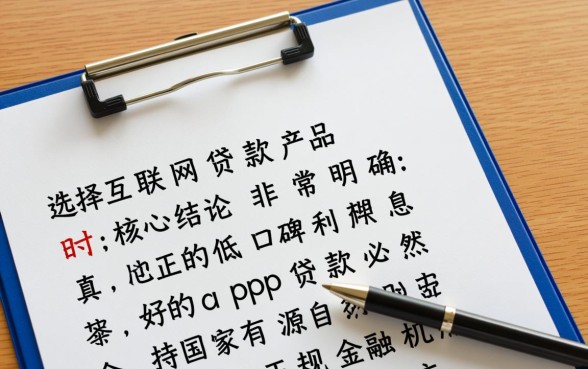 选择互联网贷款产品
时;核心结论 非常明确:
真,正的低口碑利息
,好的a ppp贷款必然
持国家有源自
规金融机